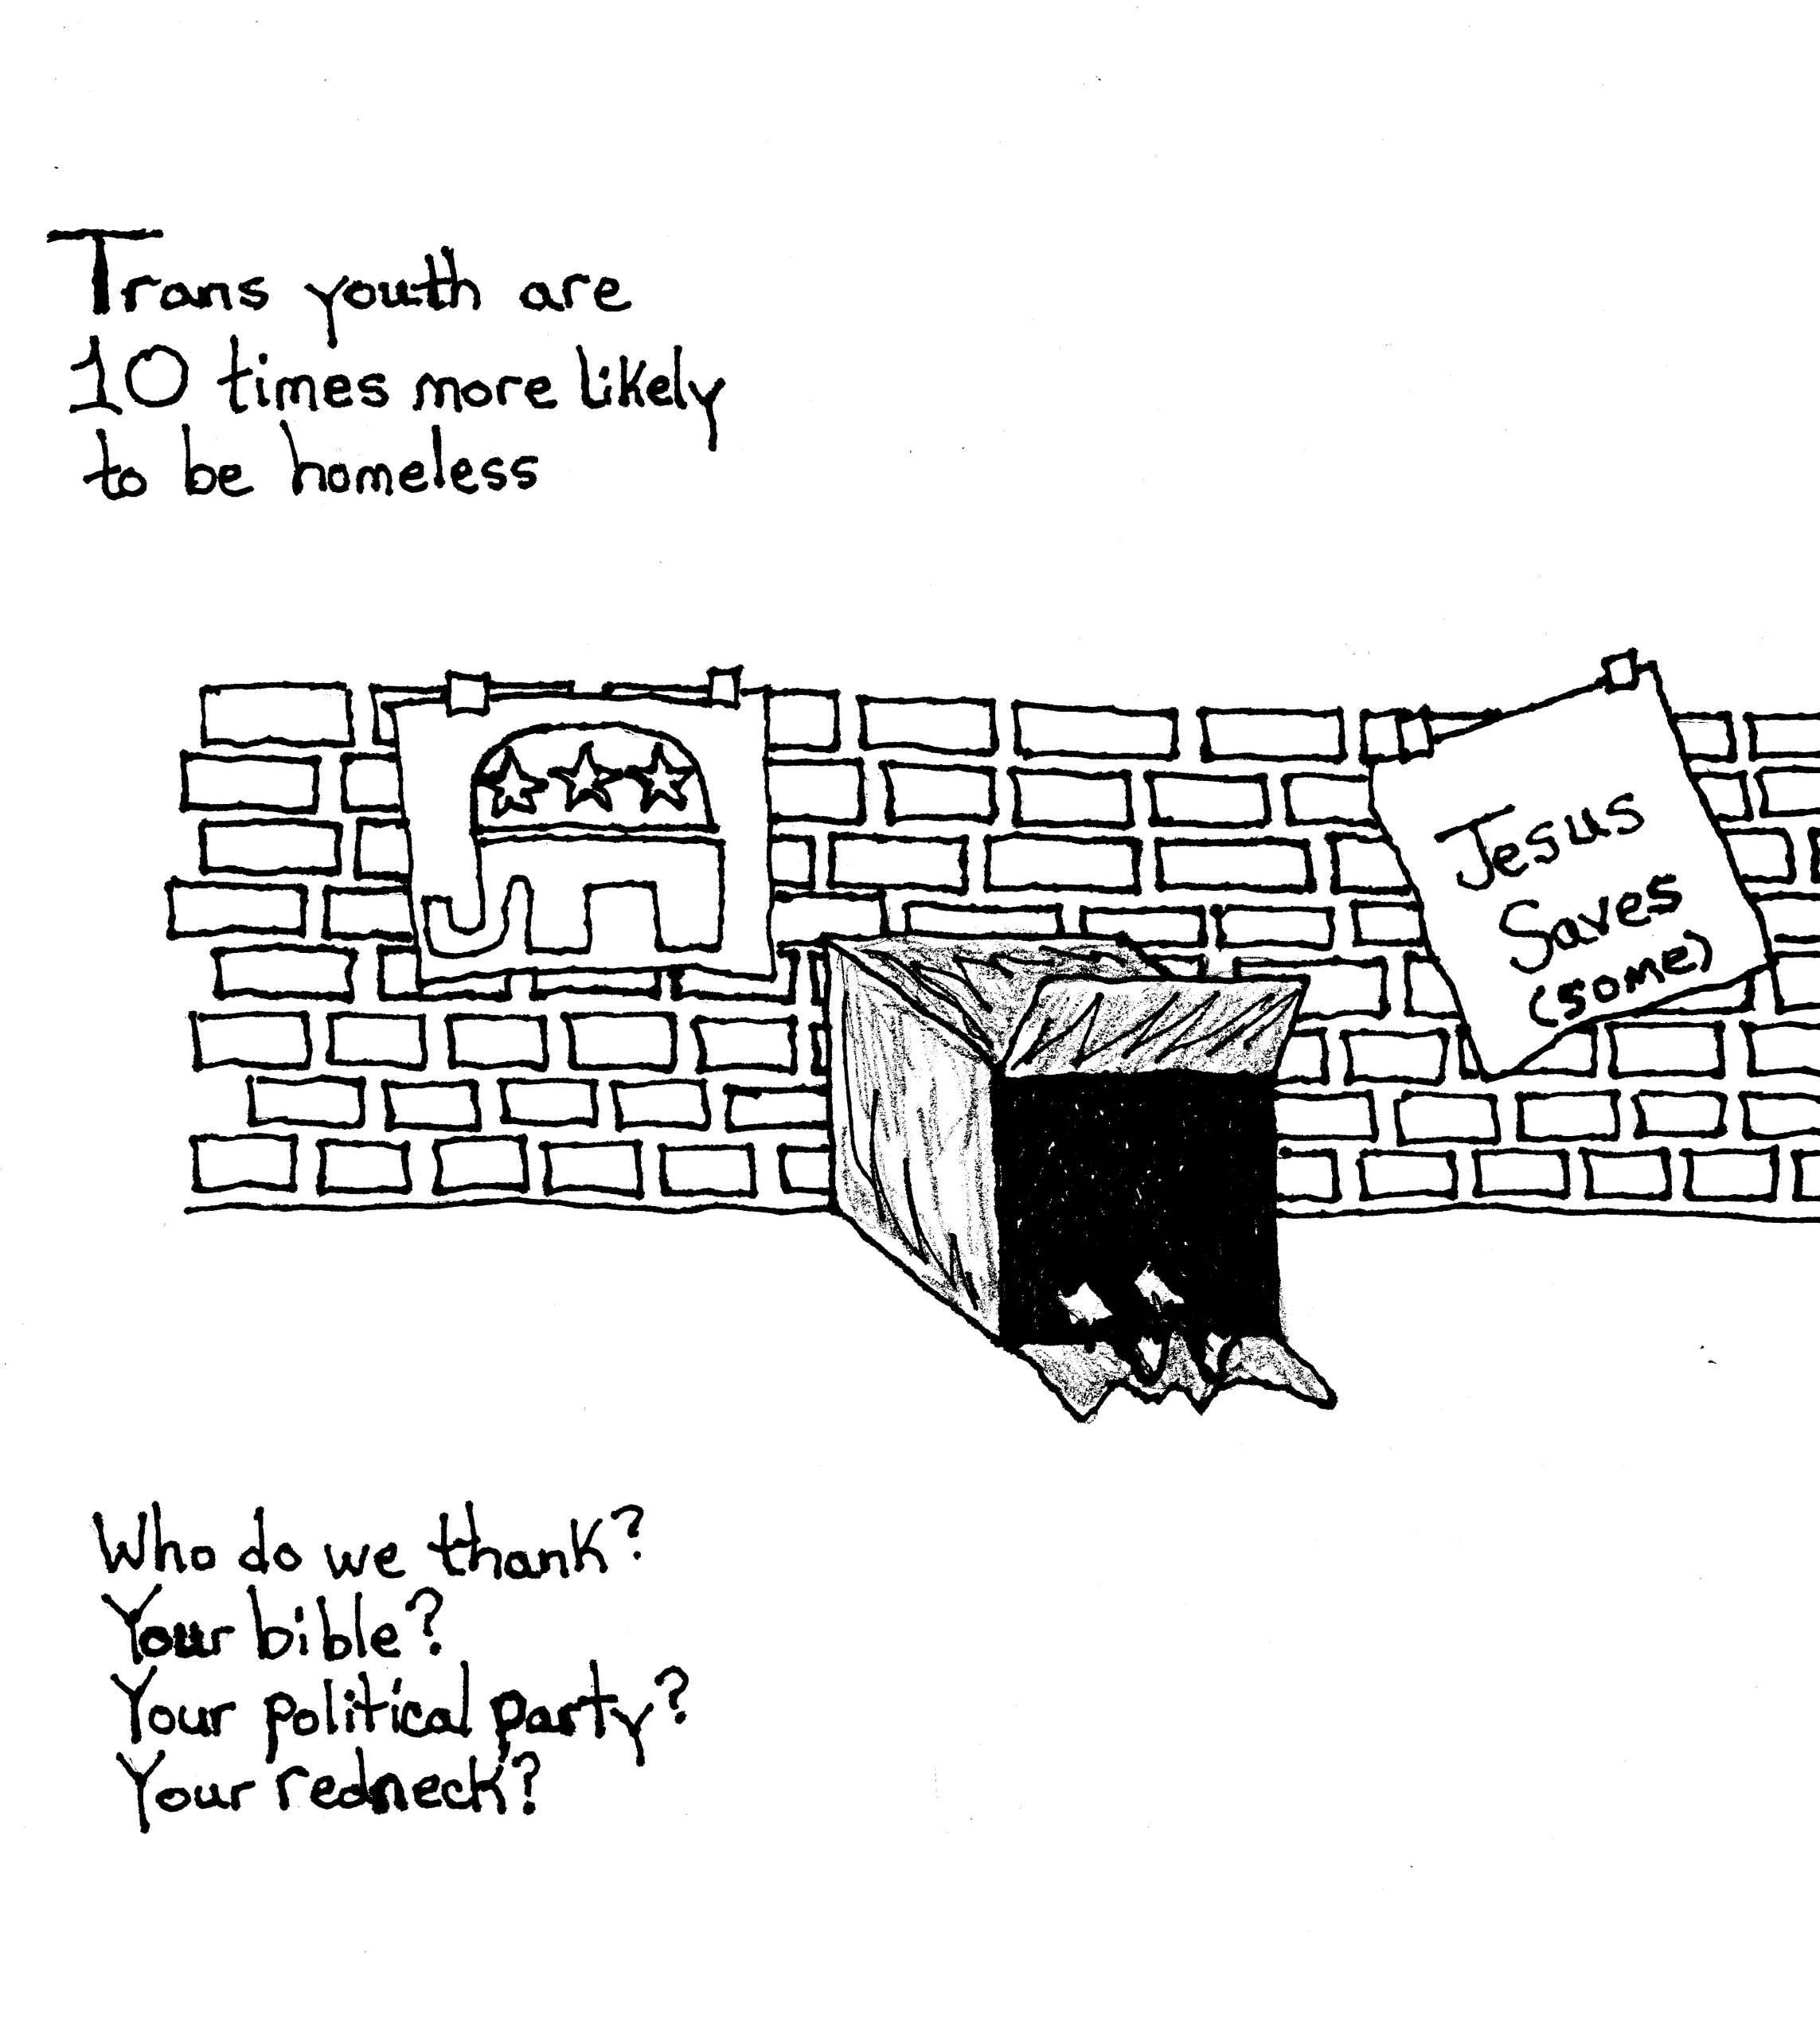 Trans youth are
10 times more likely
to be homeless
Jesus
Saves
(some)
Who do we thank?
Your bible?
Your political party?
Your redneck?